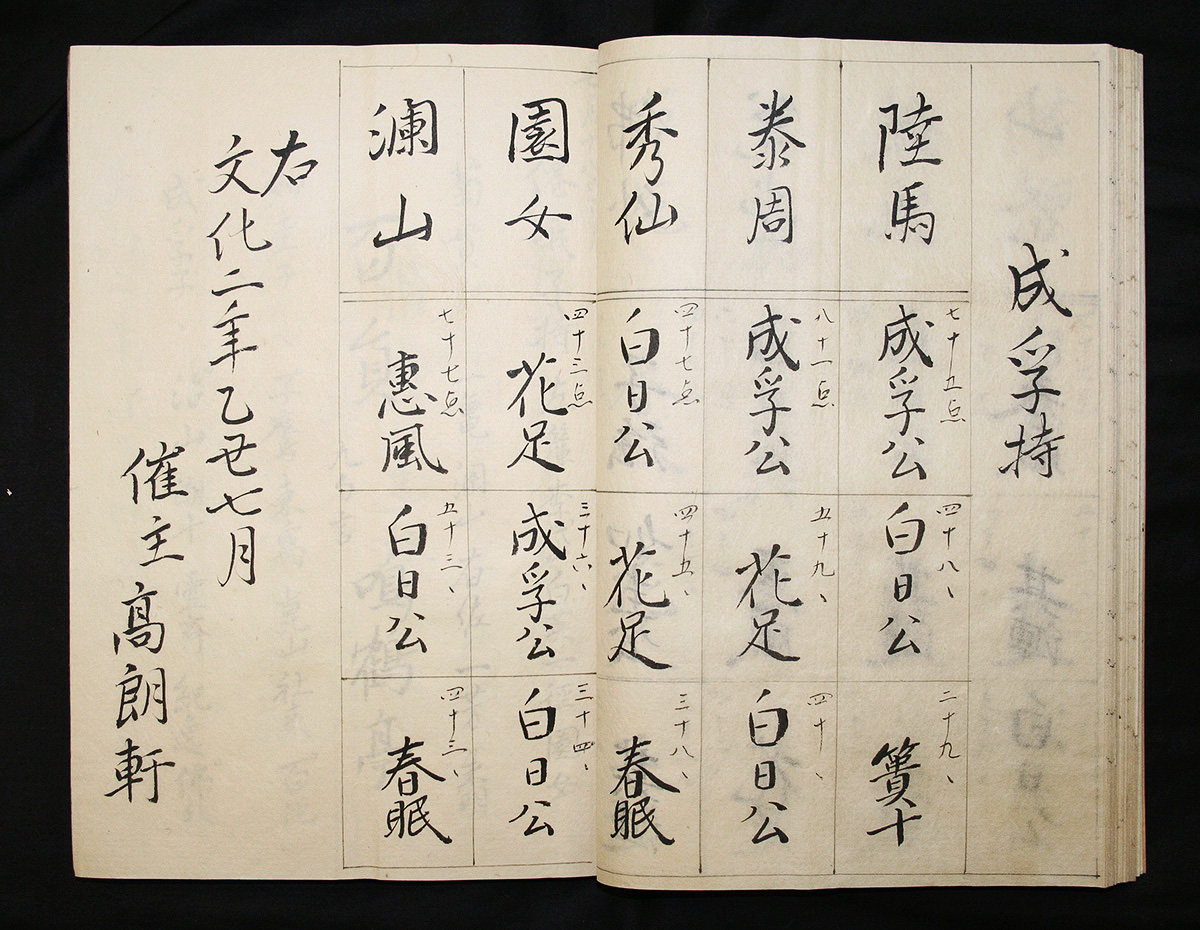 成孚持
陸馬
七十五点
成孚公
四十八、
白日公
二十九、
簣十
泰周
八十一点
成孚公
五十九、
花足
四十、
白日公
秀仙
四十七点
白日公
四十五、
花足
三十八、
春眠
園女
四十三点
花足
三十六、
成孚公
三十四、
白日公
瀾山
七十七点
惠風
五十三、
白日公
四十三、
春眠
右
文化二年乙丑七月
催主高朗軒